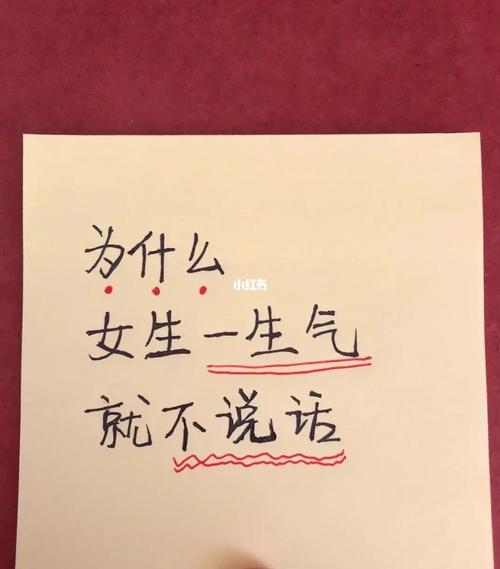 为什么
小红书
女生一生气
就不说话